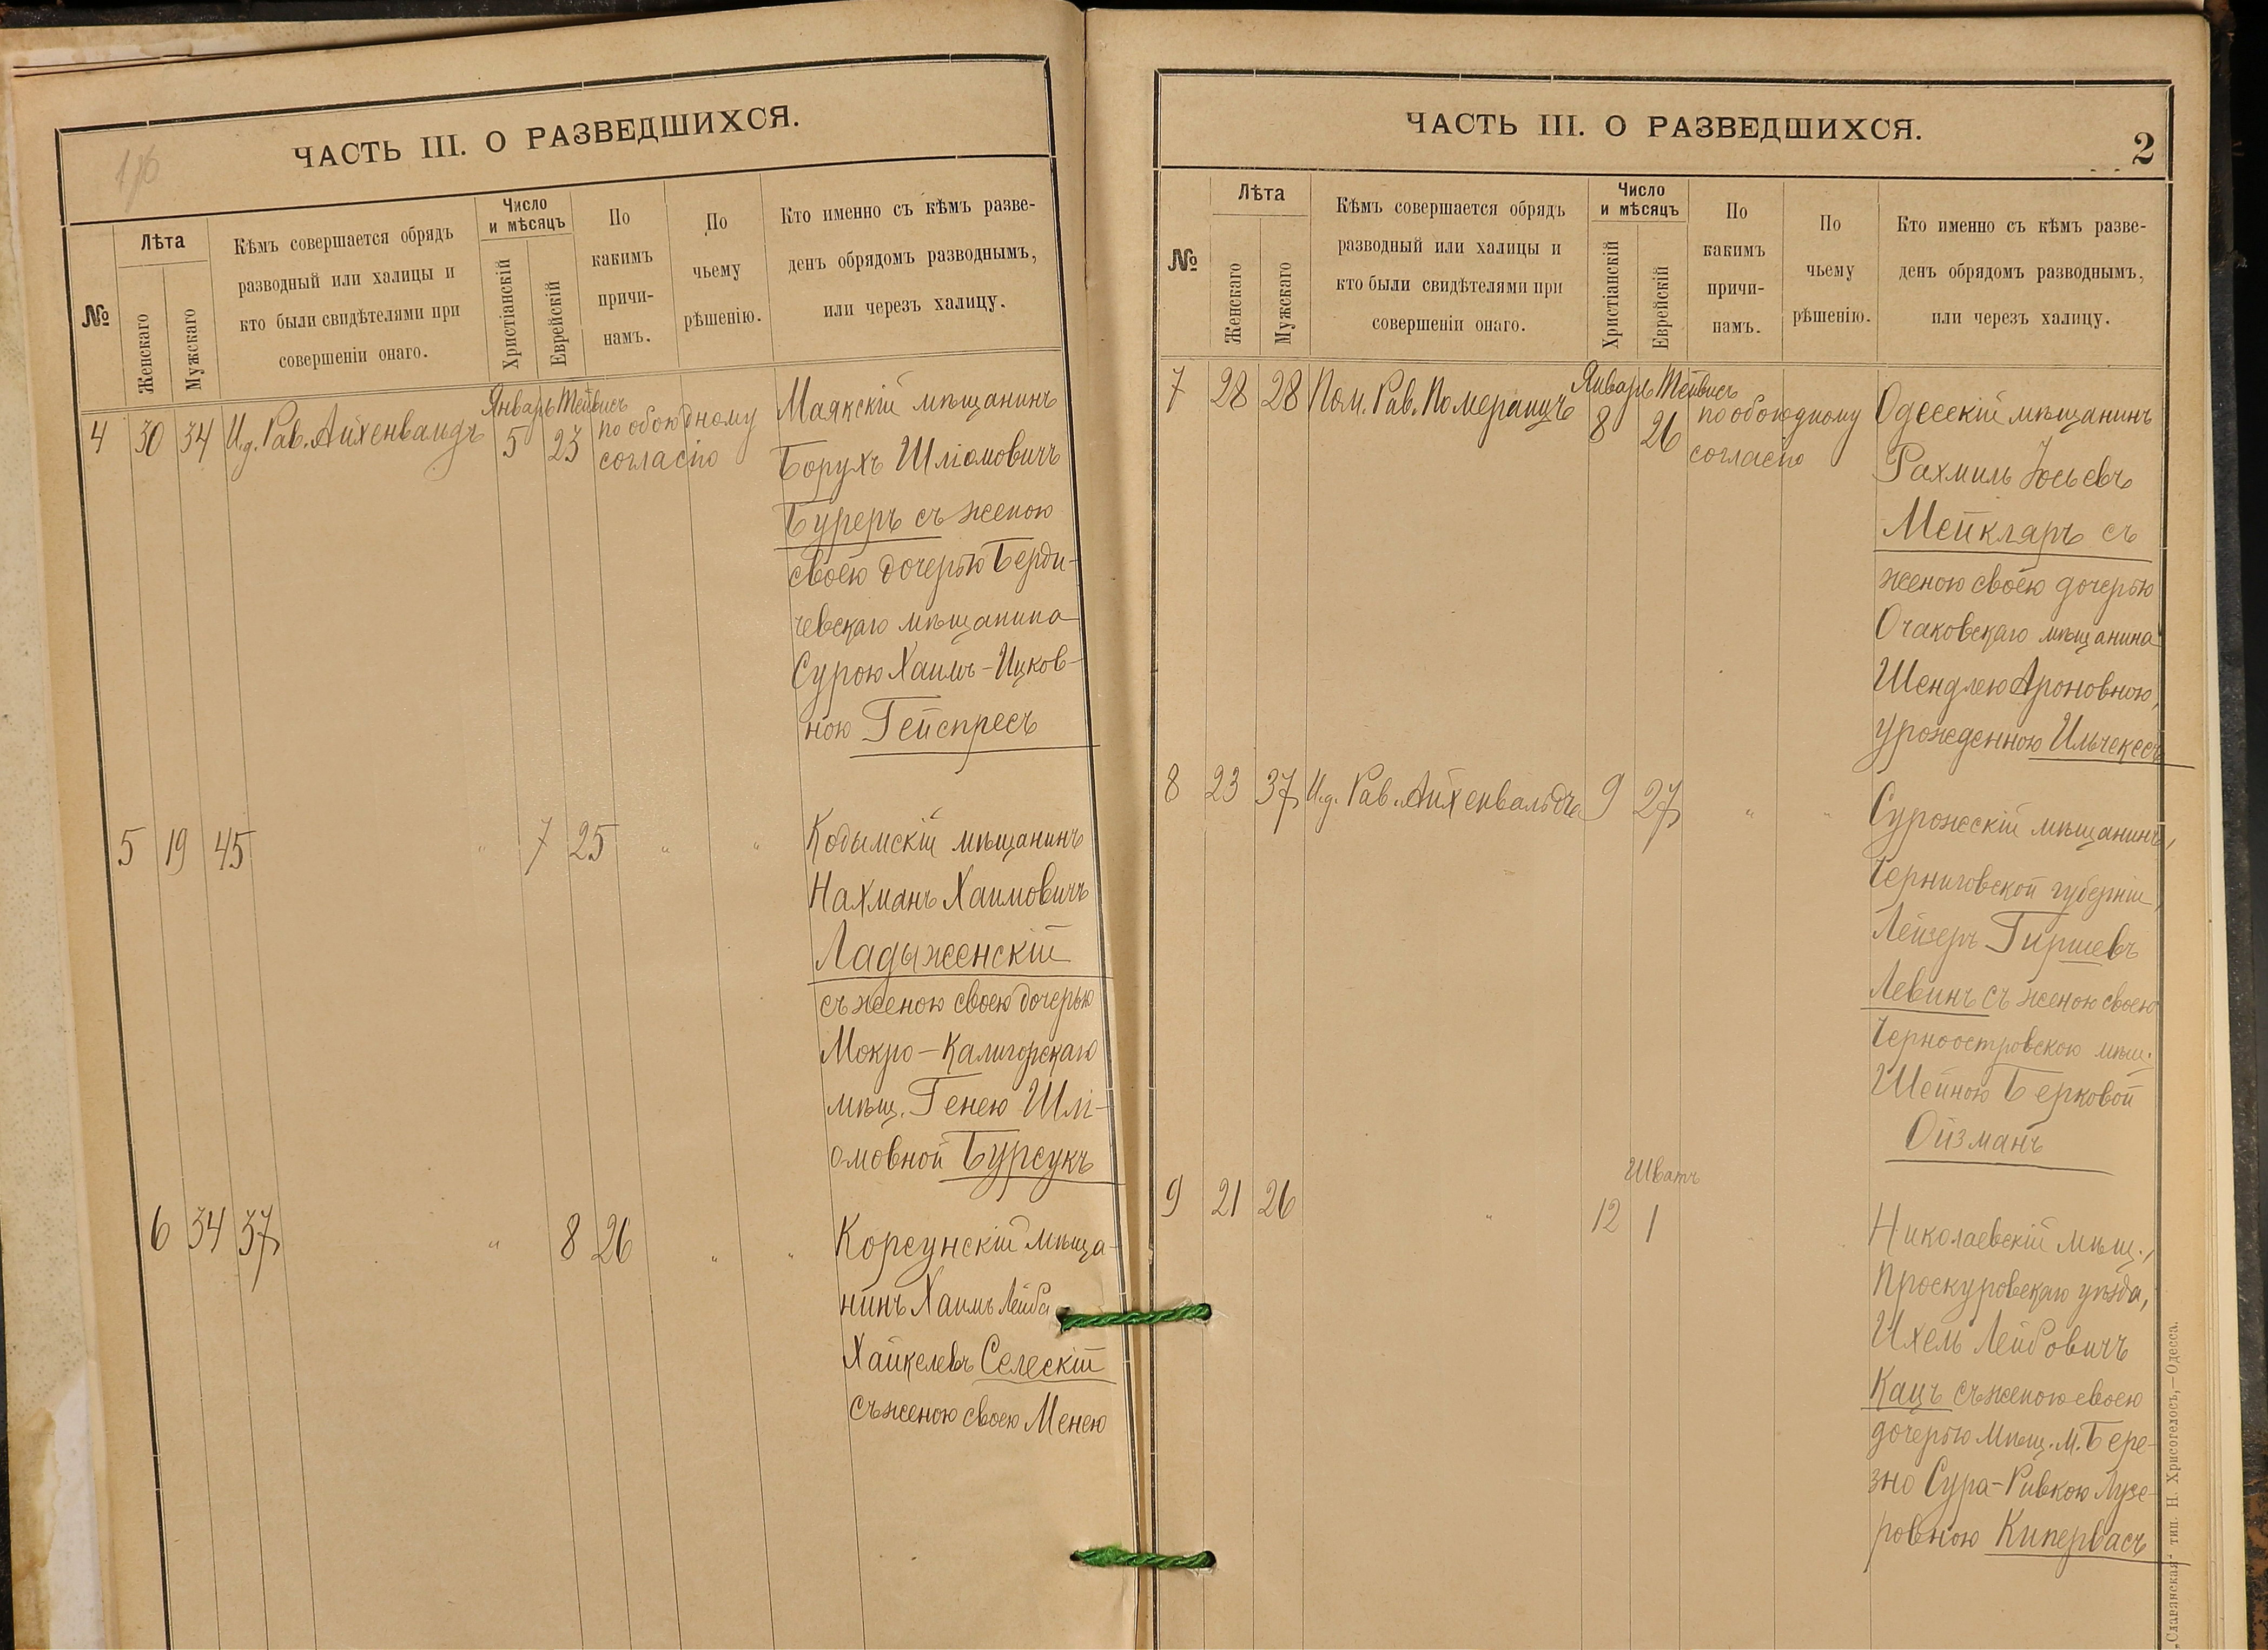 1/6
ЧАСТЬ III. О РАЗВЕДШИХСЯ.
№
Лѣта
Женскаго
Мужскаго
Кѣмъ совершается обрядъ
разводный или халицы и
кто были свидѣтелями при
совершеніи онаго.
Число
и мѣсяцъ
Христіанскій
Еврейскій
По
какимъ
причи-
намъ.
По
чьему
рѣшенію.
Кто именно съ кѣмъ разве-
денъ обрядомъ разводнымъ,
или черезъ халицу.
Январь Тейвисъ
4 30 34 И.д. Рав. Айхенвальдъ 5 23 по обоюдному
согласію
Маякскій мѣщанинъ
Борухъ Шліомовичъ
Буреръ съ женою
своею дочерью Берди-
чевскаго мѣщанина
Сурою Хаимъ-Ицков-
ною Гейспресъ
5 19 45 " 7 25 " "
Кодымскій мѣщанинъ
Нахманъ Хаимовичъ
Ладыженскій
съ женою своею дочерью
Мокро-Калигорскаго
мѣщ. Генею Шлі-
омовной Бурсукъ
6 34 37 " 8 26 " "
Корсунскій мѣща-
нинъ Хаимъ Лейба
Хайкелевъ Селескій
съ женою своею Менею
ЧАСТЬ III. О РАЗВЕДШИХСЯ.
2
№
Лѣта
Женскаго
Мужскаго
Кѣмъ совершается обрядъ
разводный или халицы и
кто были свидѣтелями при
совершеніи онаго.
Число
и мѣсяцъ
Христіанскій
Еврейскій
По
какимъ
причи-
намъ.
По
чьему
рѣшенію.
Кто именно съ кѣмъ разве-
денъ обрядомъ разводнымъ,
или черезъ халицу.
Январь Тейвисъ
7 28 28 Пом. Рав. Померанцъ 8 26 по обоюдному
согласію
Одесскій мѣщанинъ
Рахмиль Юсьевъ
Мейкляръ съ
женою своею дочерью
Очаковскаго мѣщанина
Шендлею Ароновною,
урожденною Ильчекесъ
8 23 37 И.д. Рав. Айхенвальдъ 9 27 " "
Суражскій мѣщанинъ,
Черниговской губерніи,
Лейзеръ Гиршевъ
Левинъ съ женою своею
Черноостровскою мѣщ.
Шейною Берковой
Ойзманъ
Шватъ
9 21 26 " 12 1
Николаевскій мѣщ.,
Проскуровскаго уѣзда,
Ихель Лейбовичъ
Кацъ съ женою своею
дочерью мѣщ. м. Бере-
зно Сура-Ривкою Лузе-
ровною Кипервасъ
„Славянская" тип. Н. Хрисогелосъ,—Одесса.